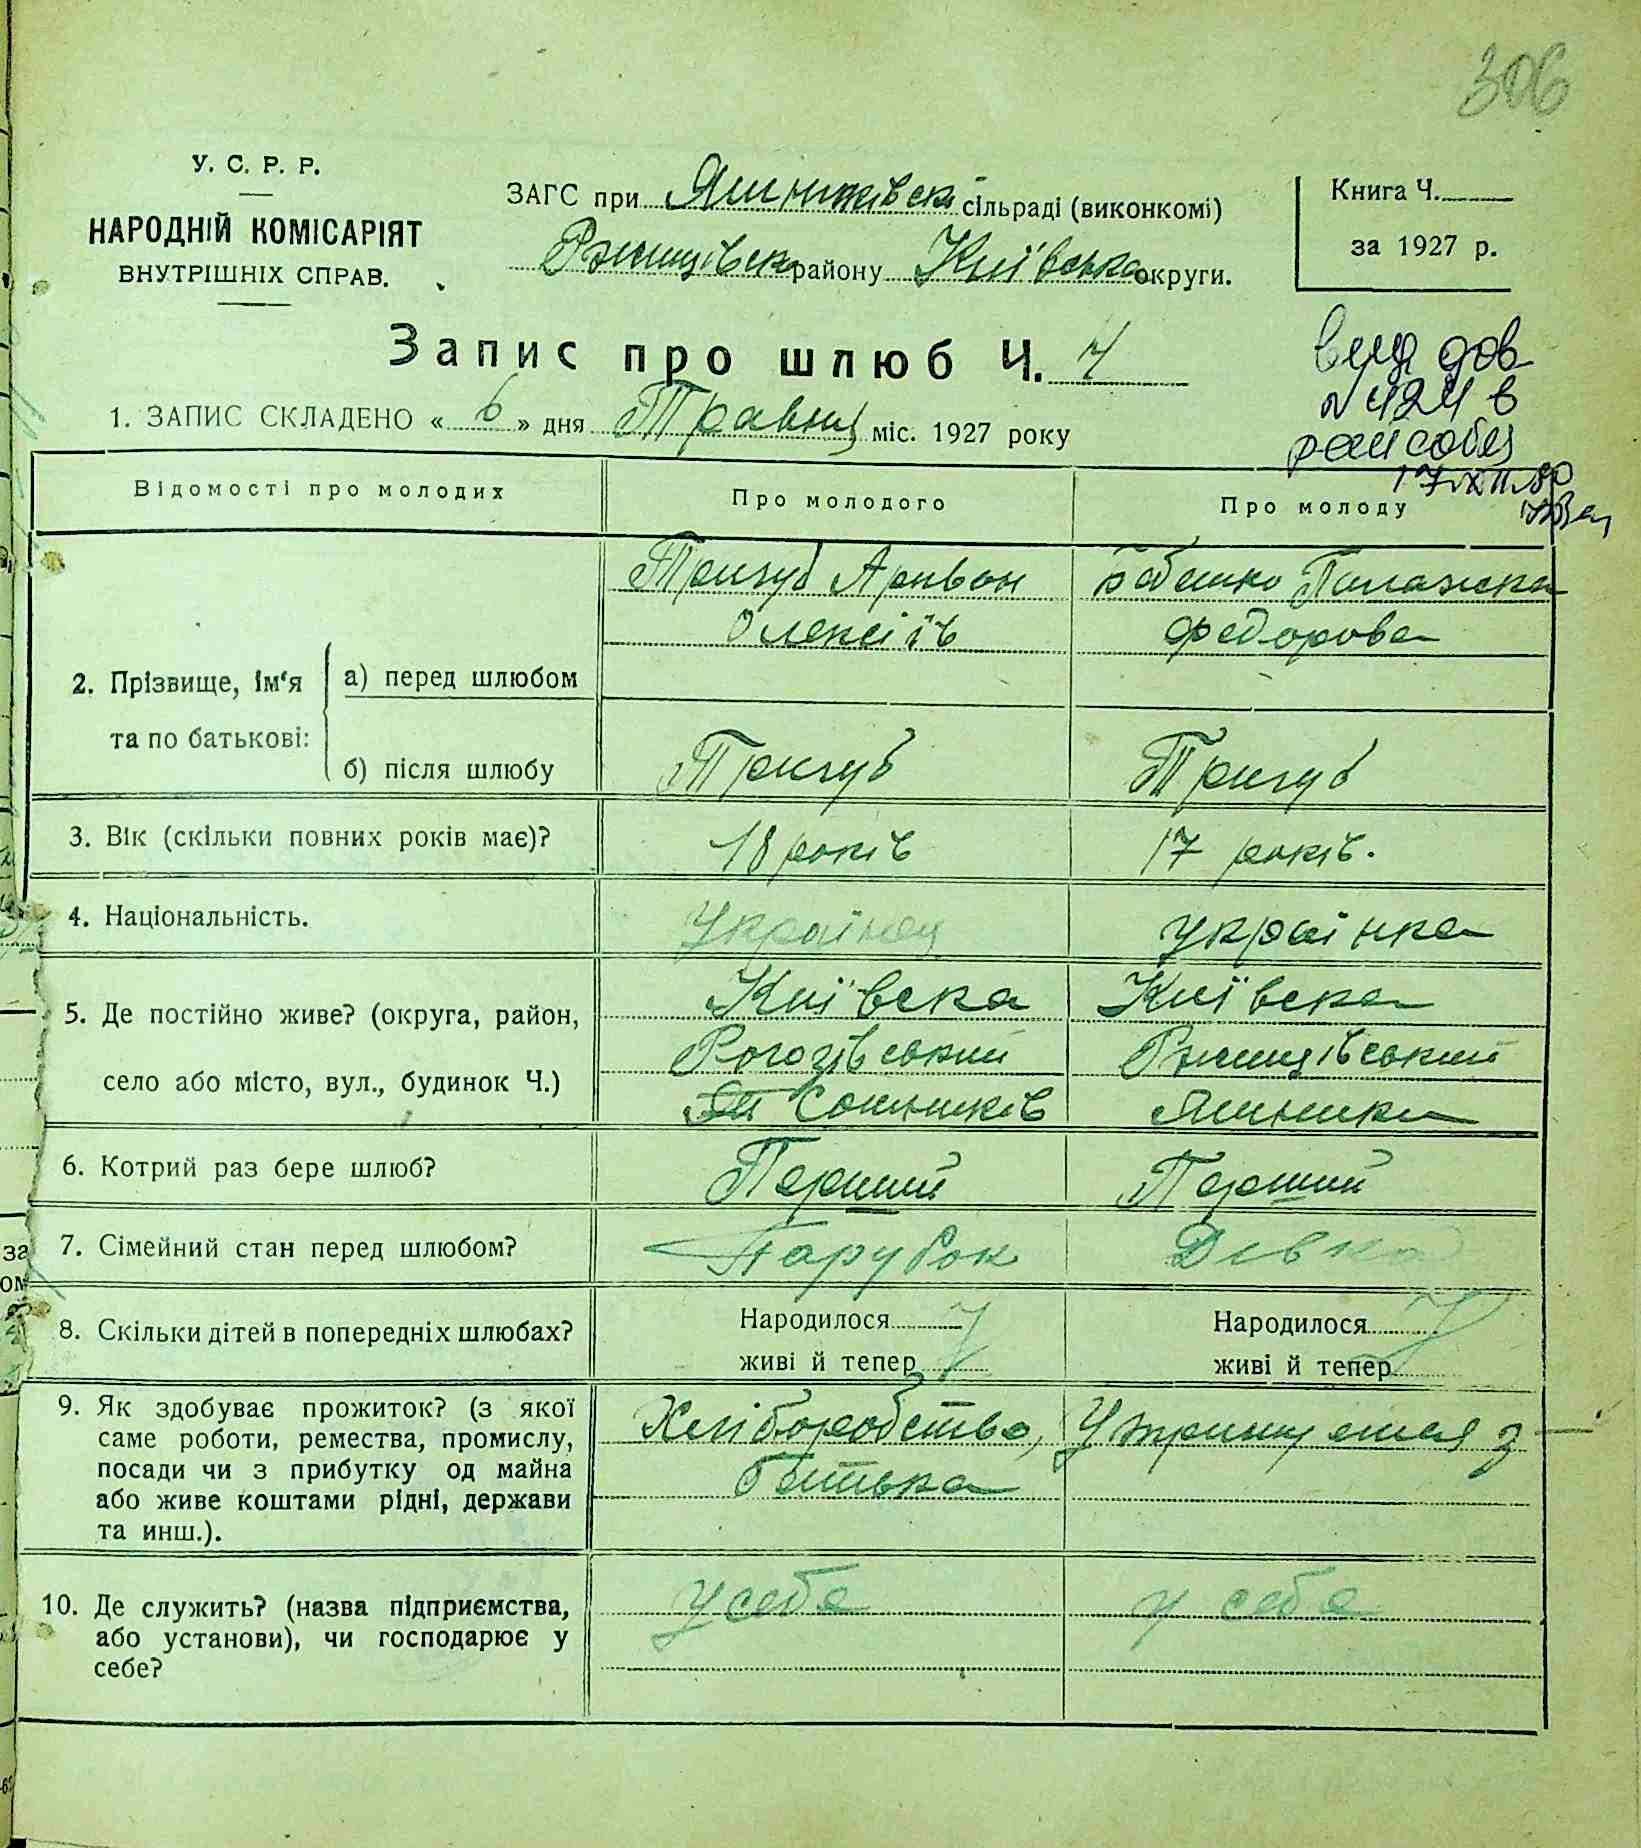 306
У. С. Р. Р.
НАРОДНІЙ КОМІСАРІЯТ
ВНУТРІШНІХ СПРАВ.
ЗАГС при Яшниківскі сільраді (виконкомі)
Ржищівск району Київська округи.
Книга Ч.
за 1927 р.
Запис про шлюб Ч. 7
вид дов
N 424 в
райсобез
17/XII 80
1. ЗАПИС СКЛАДЕНО « 6 » дня Травня міс. 1927 року
Відомості про молодих
Про молодого
Про молоду
2. Прізвище, ім'я та по батькові:
а) перед шлюбом
Тригуб
Олексіїв
Бабешко Палажка
Федорова
б) після шлюбу
Тригуб
Тригуб
3. Вік (скільки повних років має)?
18 років
17 років.
4. Національність.
Українец
українка
5. Де постійно живе? (округа, район,
село або місто, вул., будинок Ч.)
Київска
Рогозівський
Сошників
Київска
Ржищівський
Яшники
6. Котрий раз бере шлюб?
Перший
Перший
7. Сімейний стан перед шлюбом?
Парубок
Дівка
8. Скільки дітей в попередніх шлюбах?
Народилося
живі й тепер
Народилося
живі й тепер
9. Як здобуває прожиток? (з якої
саме роботи, ремества, промислу,
посади чи з прибутку од майна
або живе коштами рідні, держави
та инш.).
Хліборобство,
батька
Утримуется з
10. Де служить? (назва підприємства,
або установи), чи господарює у
себе?
у себе
у себе